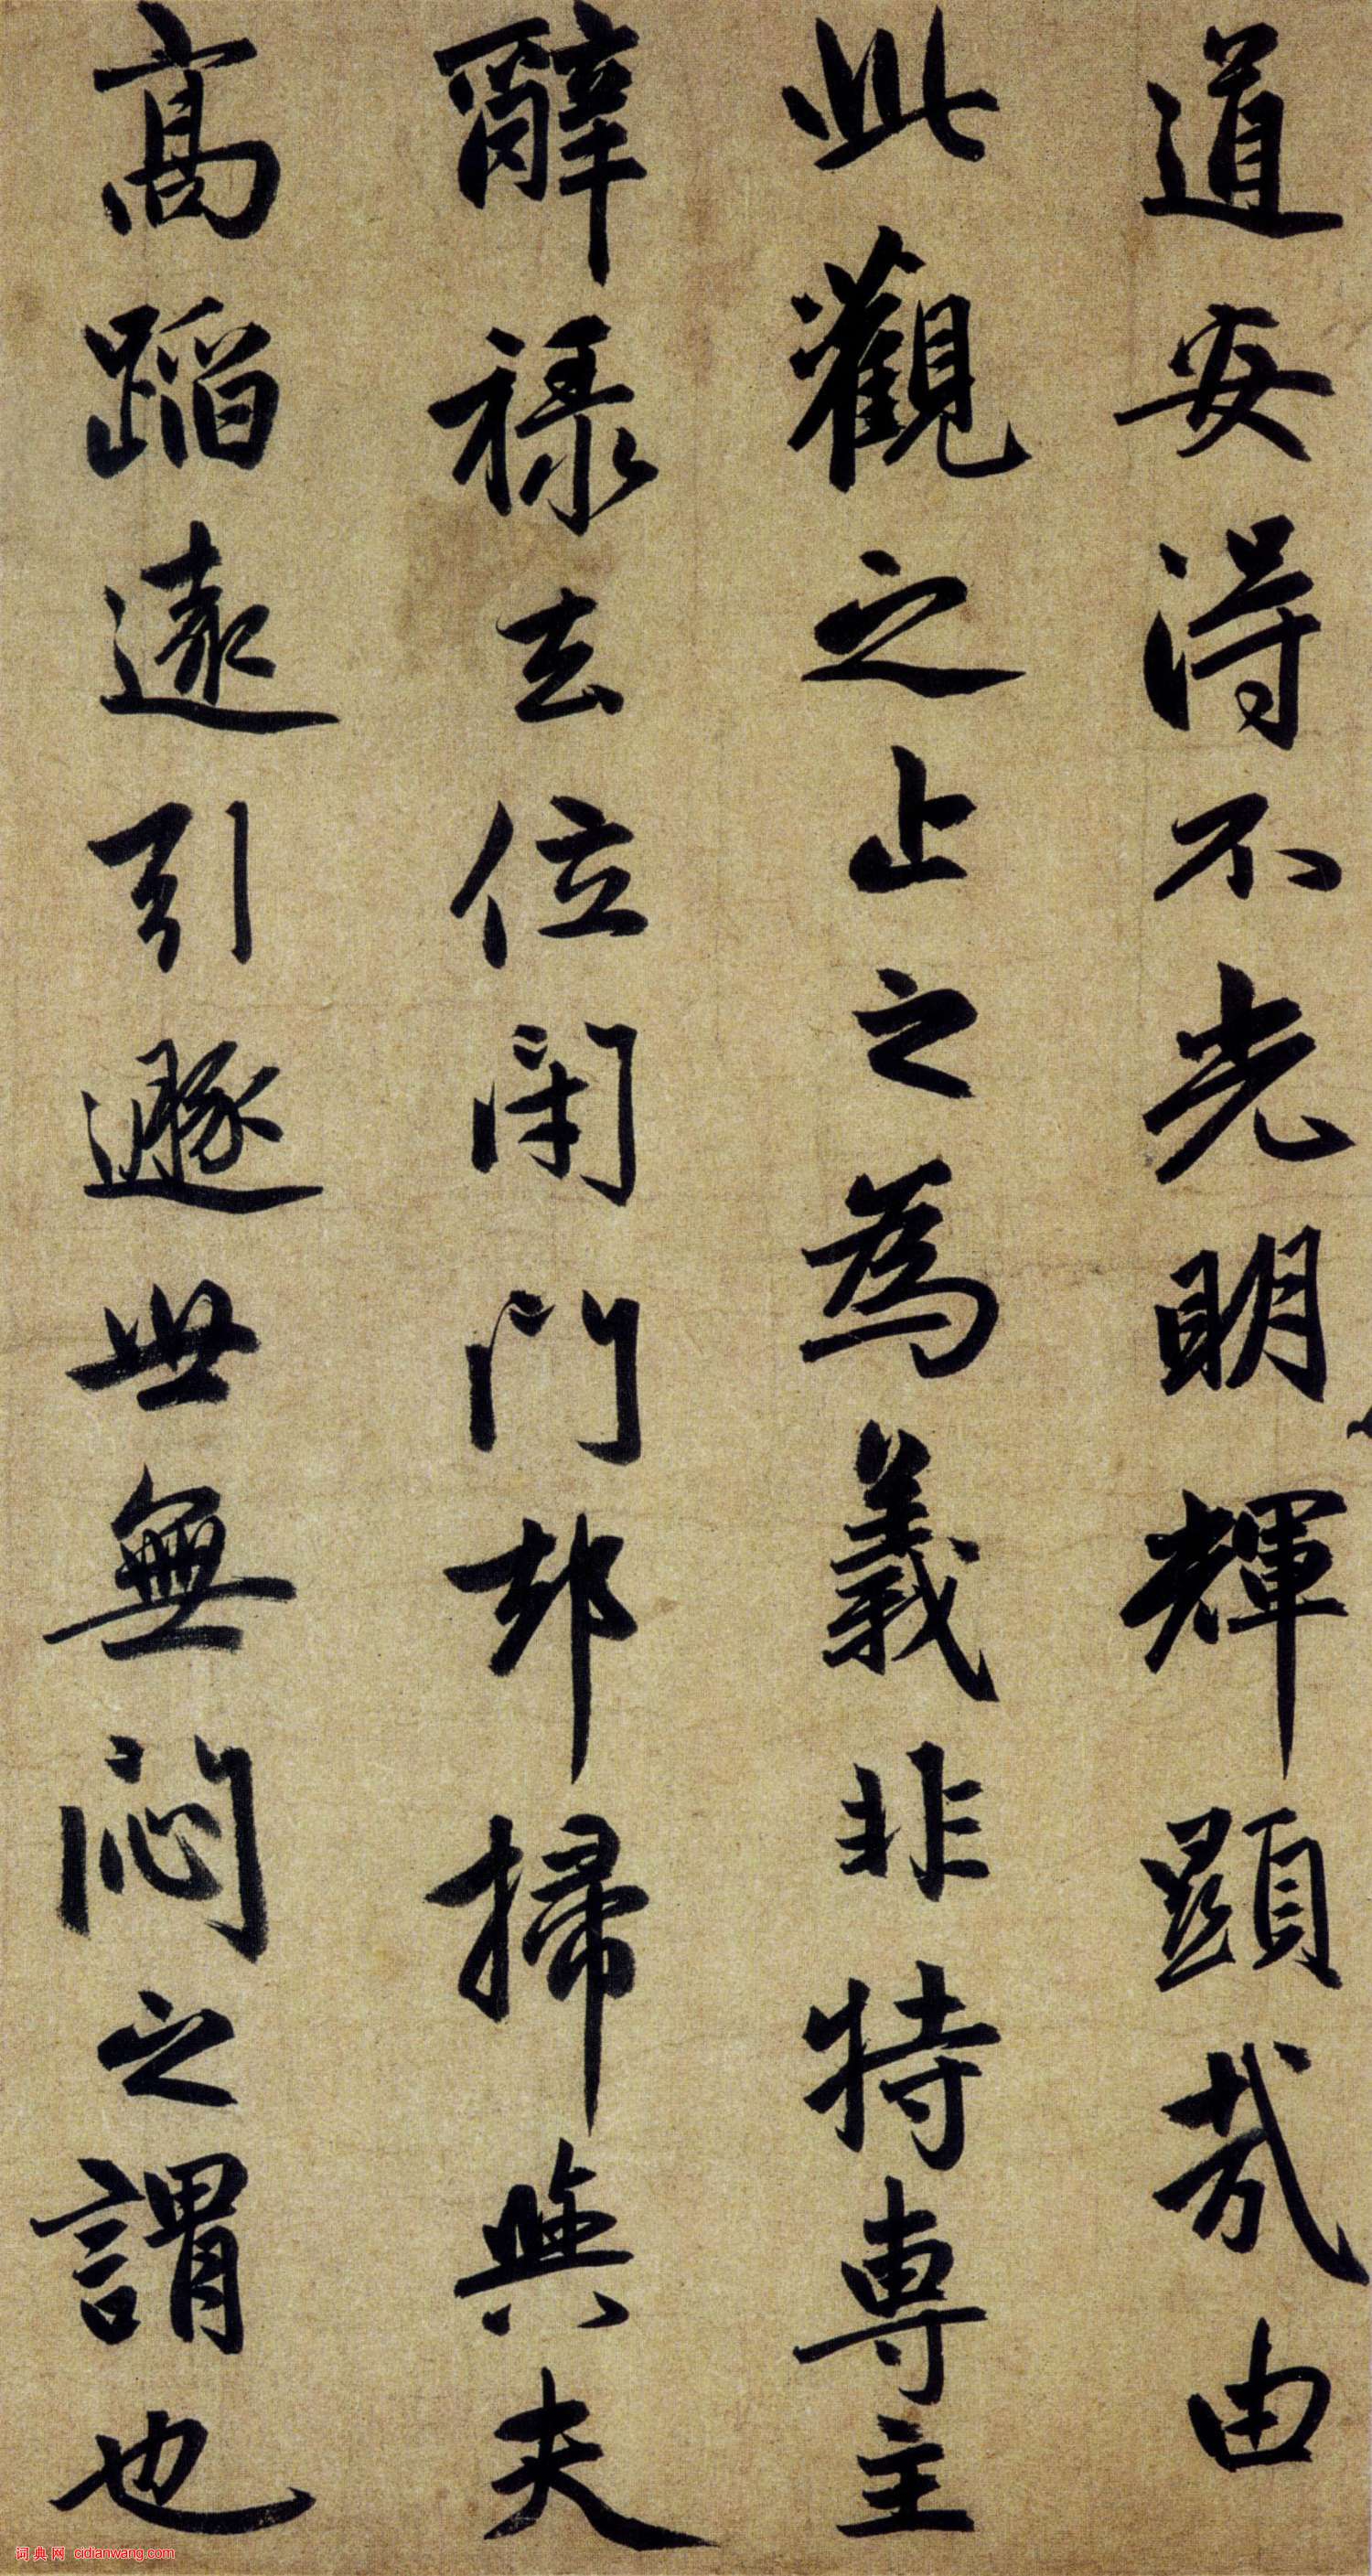 道安得不光明輝顯哉由
此觀之止之為義非特專主
辭祿去位閉門却掃與夫
高蹈遠引遯世無悶之謂也
词典网 cidianwang.com